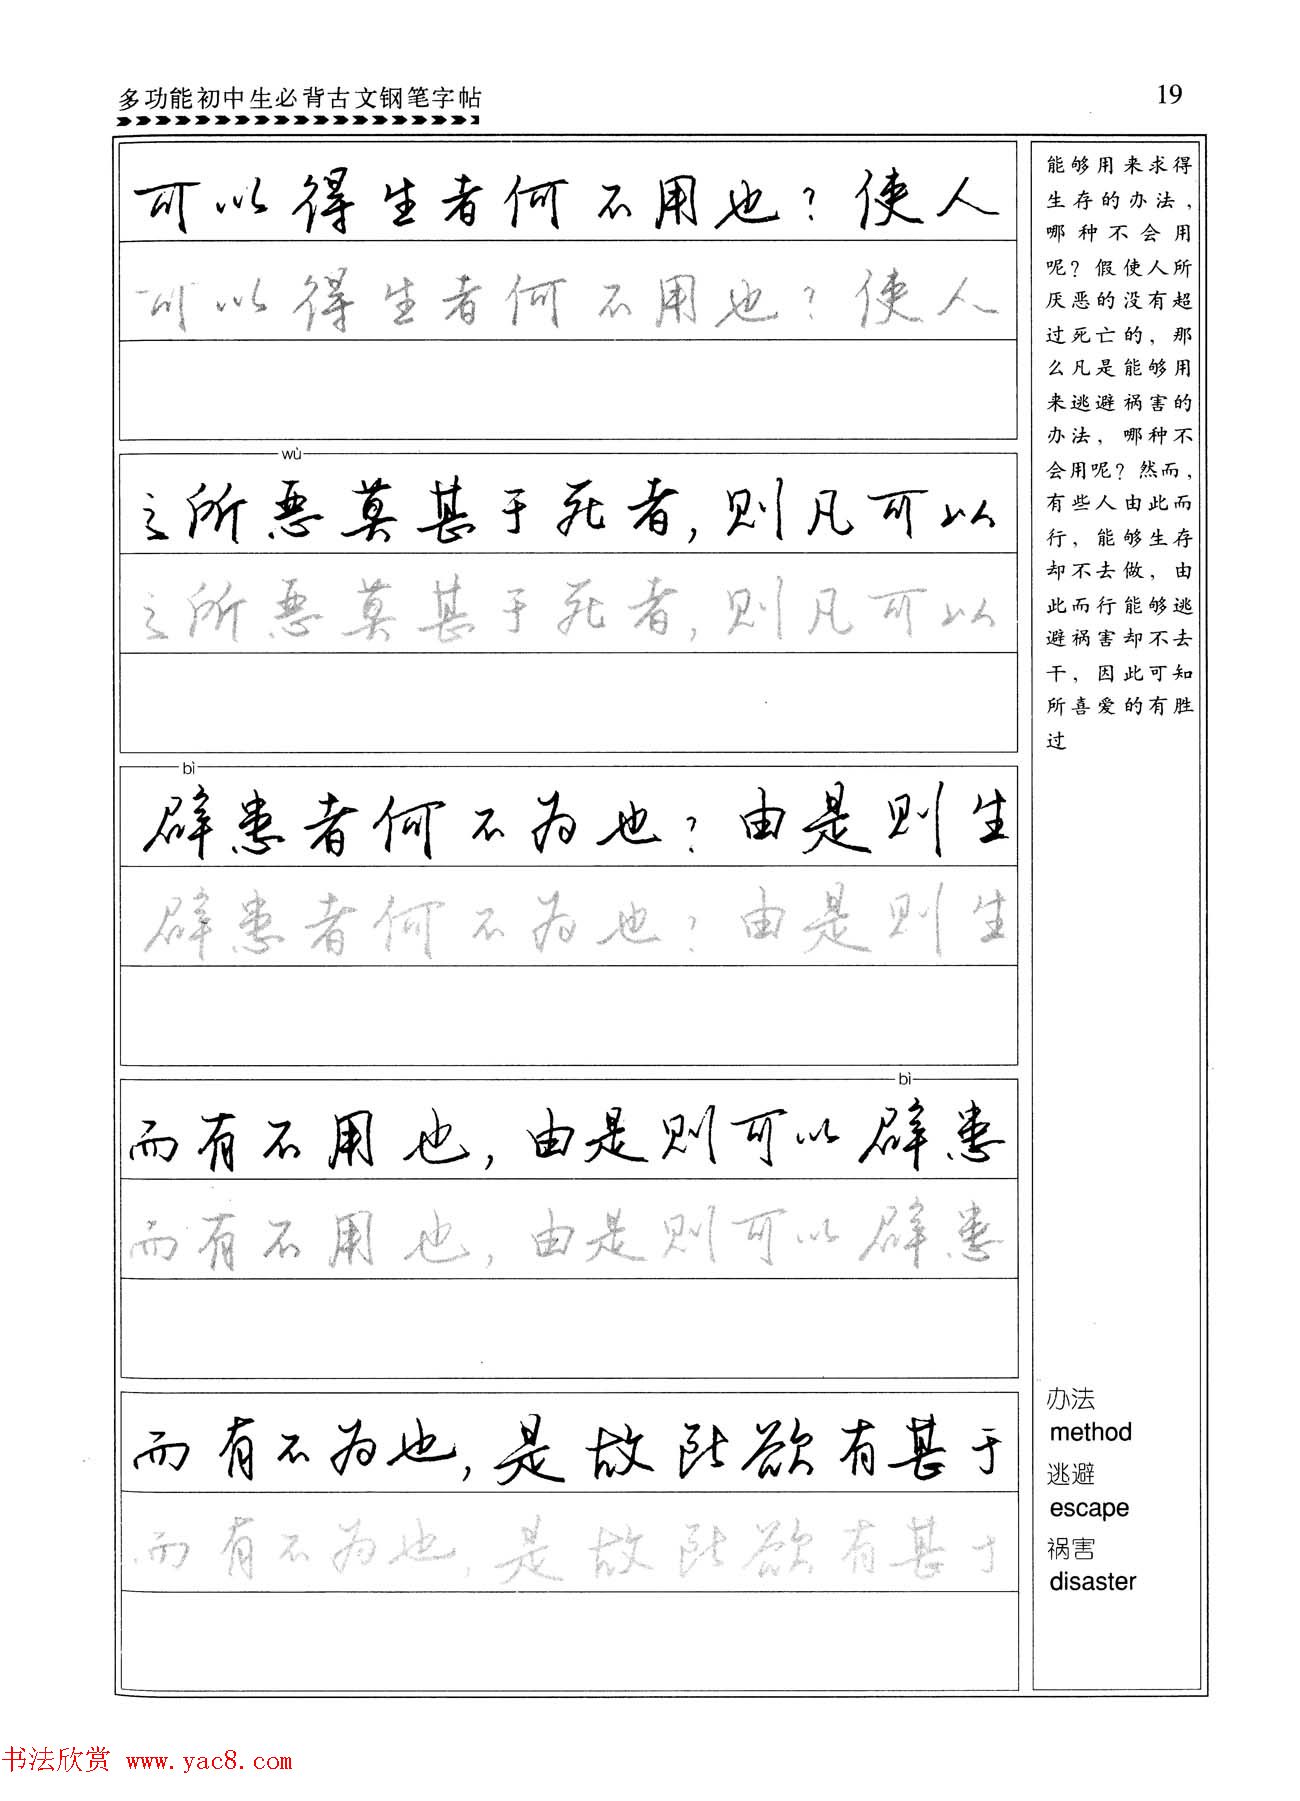 多功能初中生必背古文钢笔字帖
19
可以得生者何不用也？使人
可以得生者何不用也？使人
wù
之所恶莫甚于死者，则凡可以
之所恶莫甚于死者，则凡可以
bì
辟患者何不为也？由是则生
辟患者何不为也？由是则生
bì
而有不用也，由是则可以辟患
而有不用也，由是则可以辟患
而有不为也，是故所欲有甚于
而有不为也，是故所欲有甚于
能够用来求得
生存的办法，
哪种不会用
呢？假使人所
厌恶的没有超
过死亡的，那
么凡是能够用
来逃避祸害的
办法，哪种不
会用呢？然而，
有些人由此而
行，能够生存
却不去做，由
此而行能够逃
避祸害却不去
干，因此可知
所喜爱的有胜
过
办法
method
逃避
escape
祸害
disaster
书法欣赏 www.yac8.com